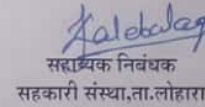 सहाय्यक निबंधक
सहकारी संस्था,ता.लोहारा